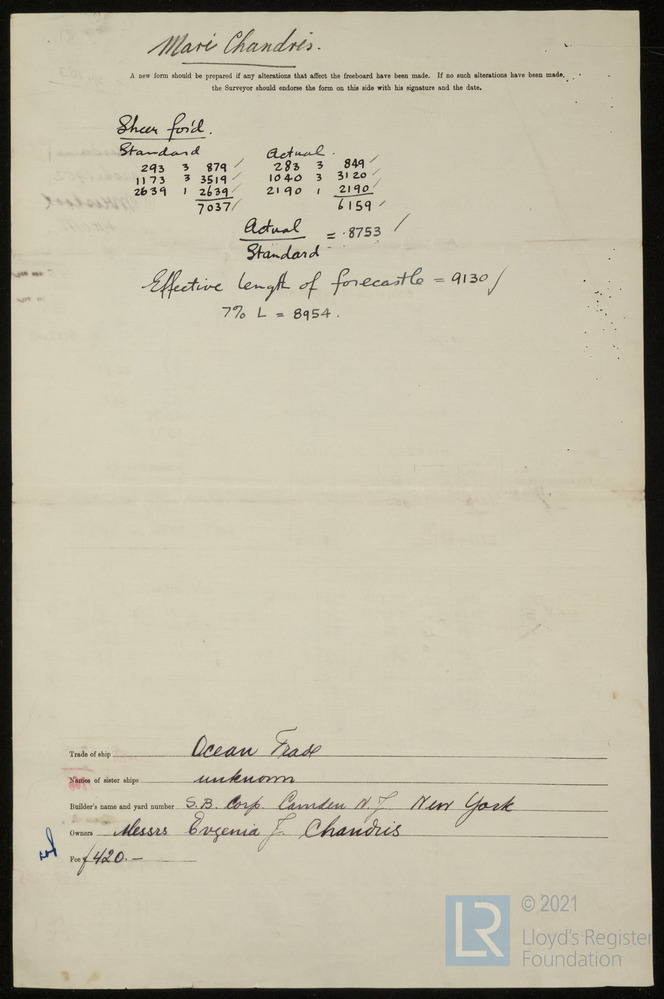 Mari Chandris.
A new form should be prepared if any alterations that affect the freeboard have been made. If no such alterations have been made,
the Surveyor should endorse the form on this side with his signature and the date.
Sheer for'd.
Standard Actual.
293 3 879 / 283 3 849 /
1173 3 3519 / 1040 3 3120 /
2639 1 2639 / 2190 1 2190 /
7037 / 6159 /
Actual
Standard = .8753 /
Effective length of forecastle = 9130 /
7% L = 8954.
Trade of ship Ocean Trade
Names of sister ships unknown
Builder's name and yard number S.B. Corp. Camden N.J. New York
Owners Messrs Evgenia J. Chandris
Fee £420.—
LR
© 2021
Lloyd's Register
Foundation